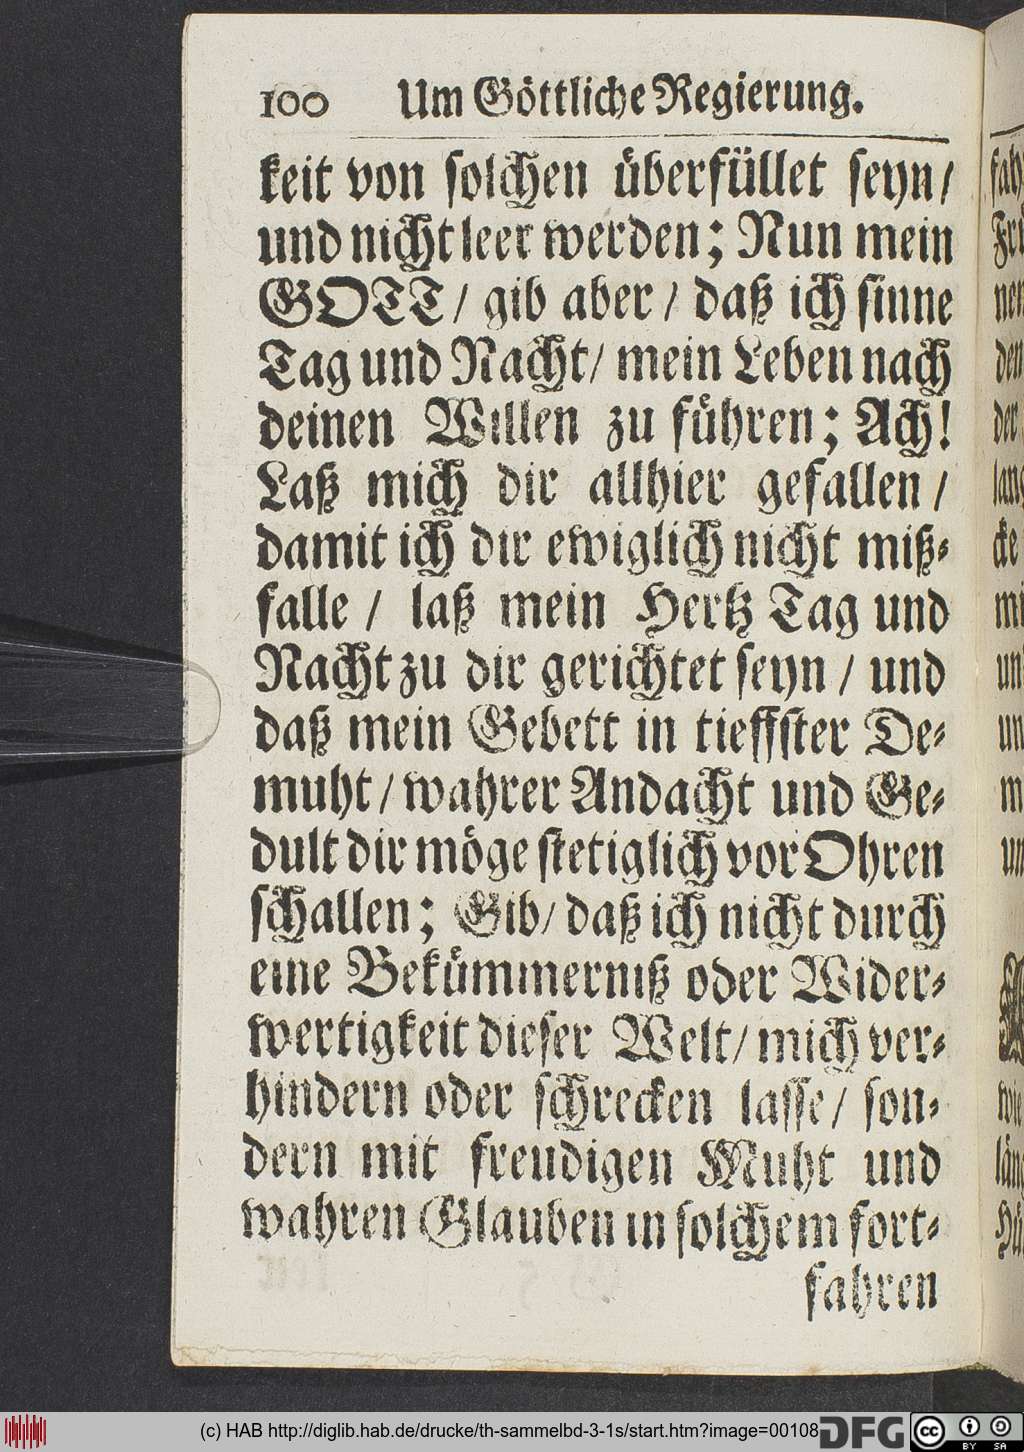 100 Um Göttliche Regierung.
keit von solchen überfüllet seyn /
und nicht leer werden; Nun mein
GOTT / gib aber / daß ich sinne
Tag und Nacht / mein Leben nach
deinen Willen zu führen; Ach!
Laß mich dir allhier gefallen /
damit ich dir ewiglich nicht miß-
falle / laß mein Hertz Tag und
Nacht zu dir gerichtet seyn / und
daß mein Gebett in tieffster De-
muht / wahrer Andacht und Ge-
dult dir möge stetiglich vor Ohren
schallen; Gib / daß ich nicht durch
eine Bekümmerniß oder Wider-
wertigkeit dieser Welt / mich ver-
hindern oder schrecken lasse / son-
dern mit freudigen Muht und
wahren Glauben in solchem fort-
fahren
(c) HAB http://diglib.hab.de/drucke/th-sammelbd-3-1s/start.htm?image=00108
DFG
cc BY SA